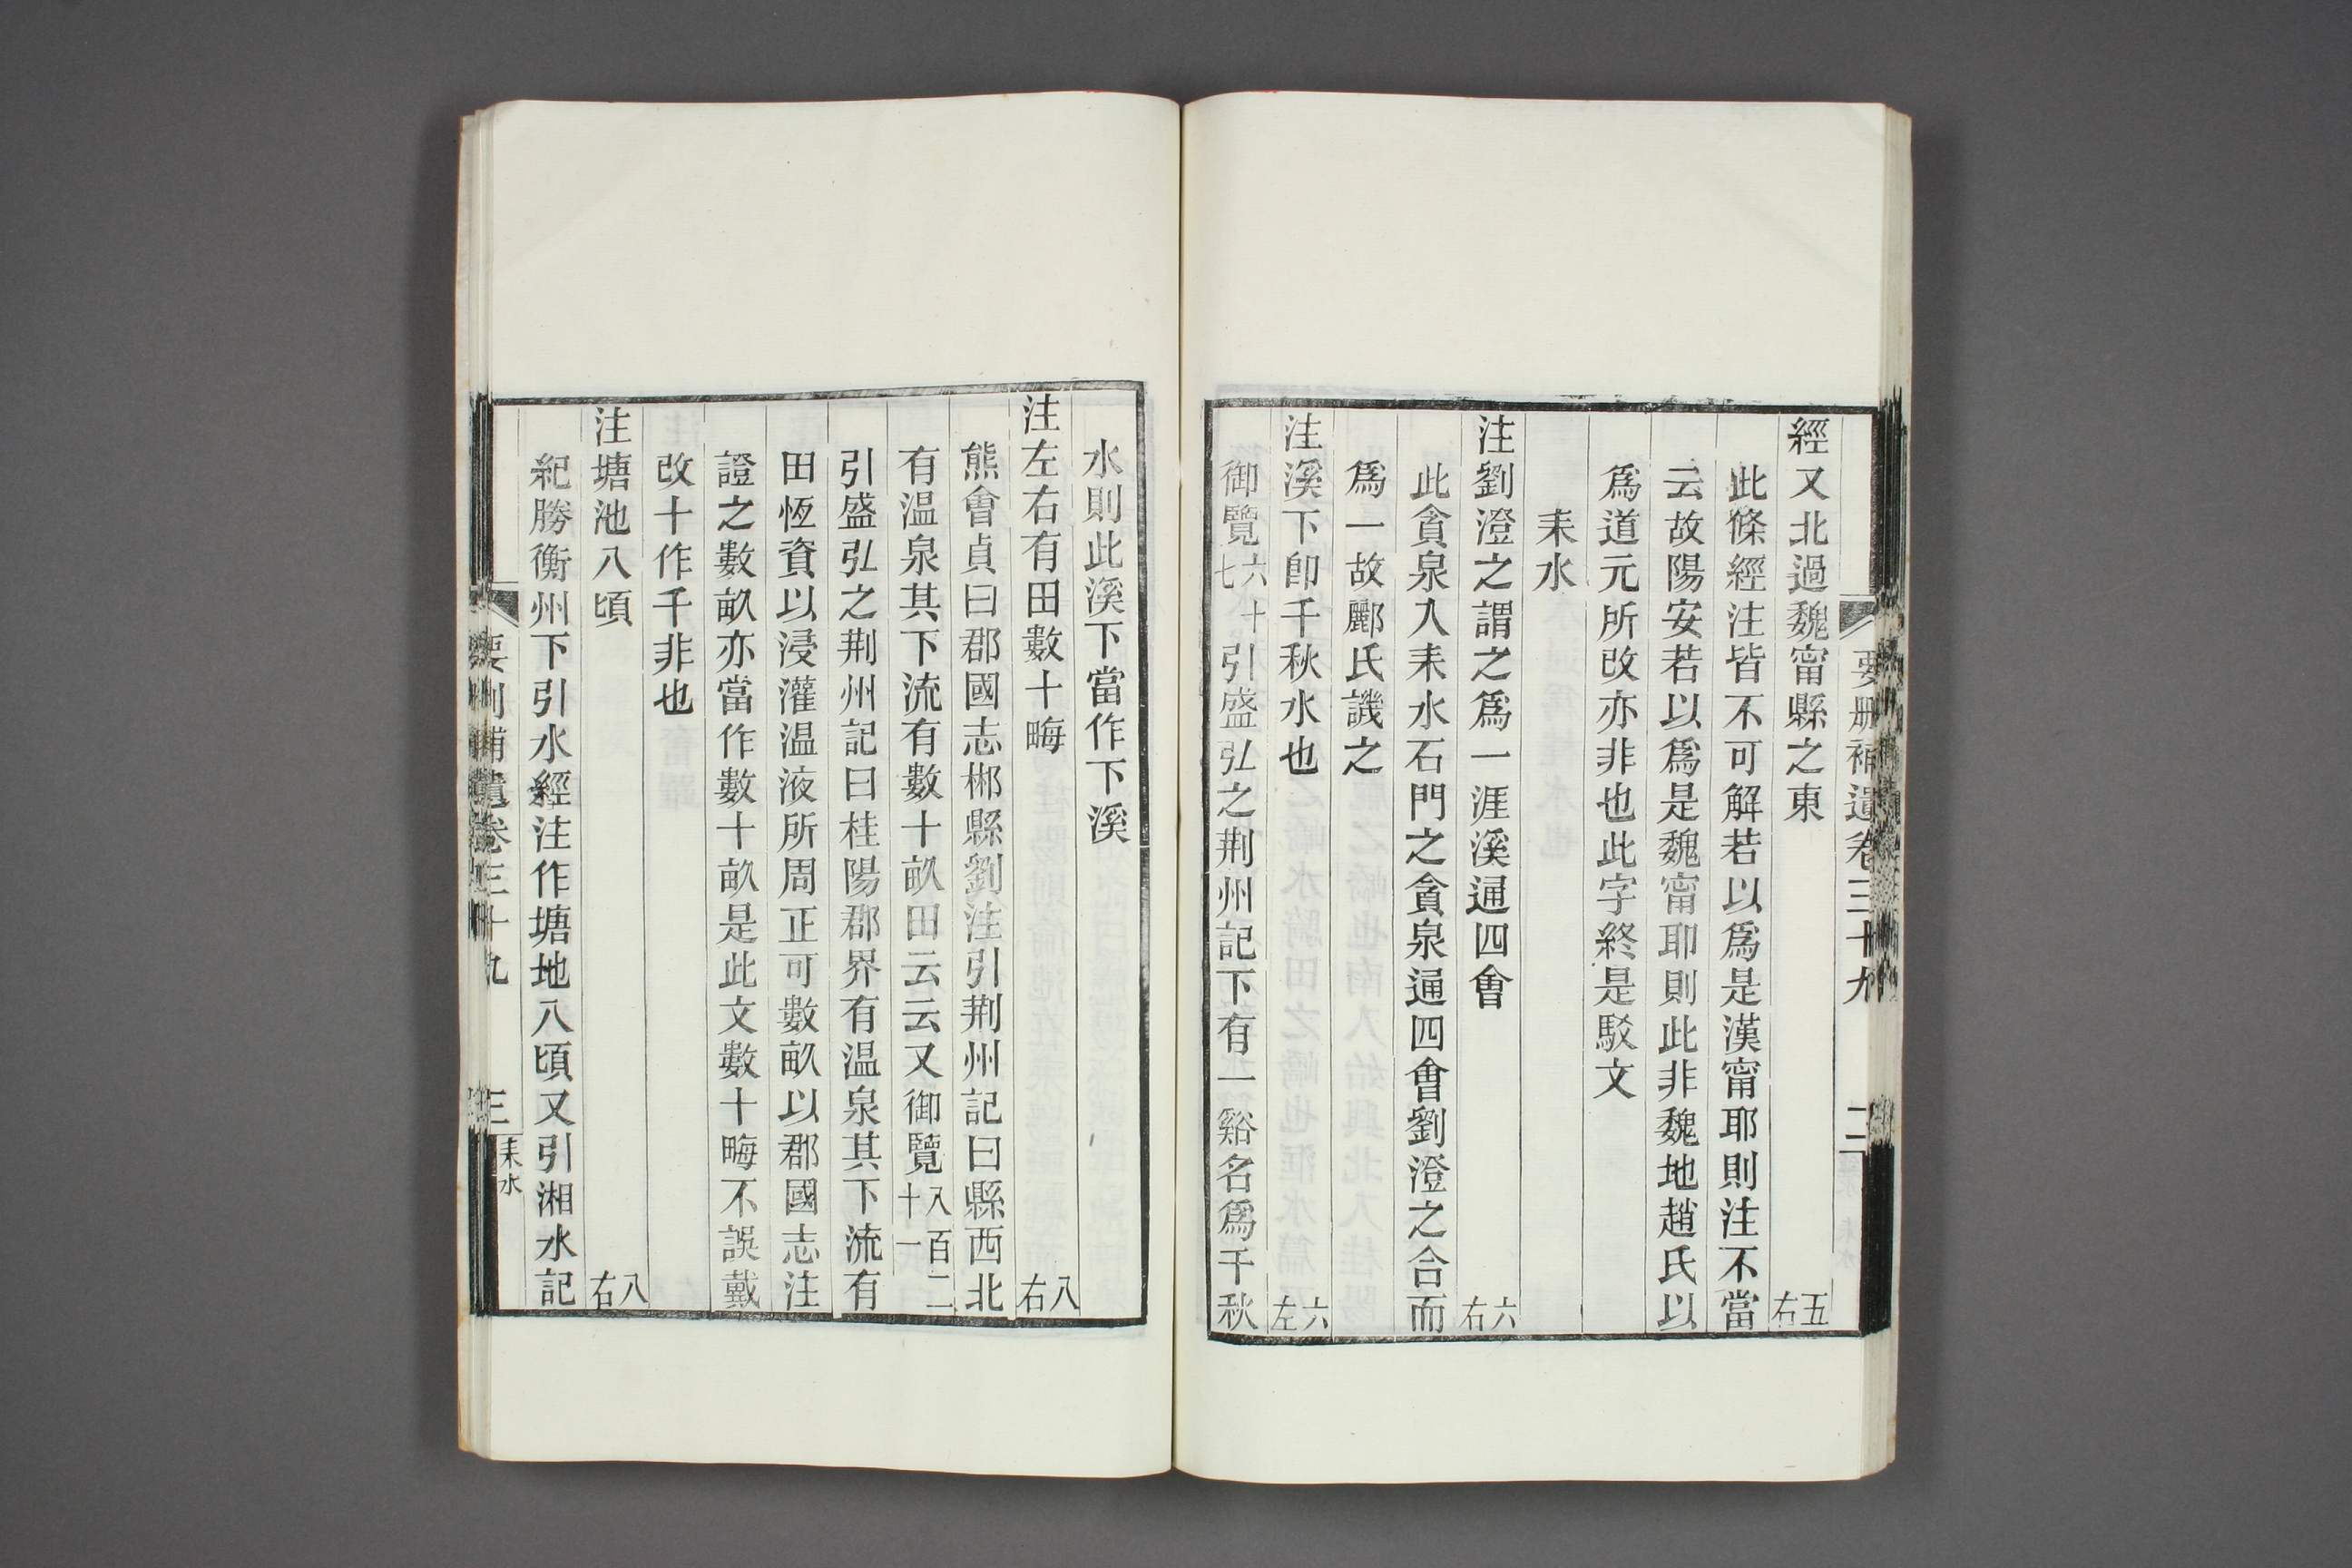 要刪補遺卷三十九 二
經又北過魏甯縣之東 五右
此條經注皆不可解若以爲是漢甯耶則注不當
云故陽安若以爲是魏甯耶則此非魏地趙氏以
爲道元所改亦非也此字終是駁文
耒水
注劉澄之謂之爲一涯溪通四會 六右
此貪泉入耒水石門之貪泉通四會劉澄之合而
爲一故酈氏譏之
注溪下卽千秋水也 六左
御覽六十七引盛弘之荆州記下有一谿名爲千秋
水則此溪下當作下溪
注左右有田數十畮 八右
熊會貞曰郡國志郴縣劉注引荆州記曰縣西北
有温泉其下流有數十畝田云云又御覽八百二十一
引盛弘之荆州記曰桂陽郡界有温泉其下流有
田恆資以浸灌温液所周正可數畝以郡國志注
證之數畝亦當作數十畝是此文數十畮不誤戴
改十作千非也
注塘池八頃 八右
紀勝衡州下引水經注作塘地八頃又引湘水記
要刪補遺卷三十九 三 耒水